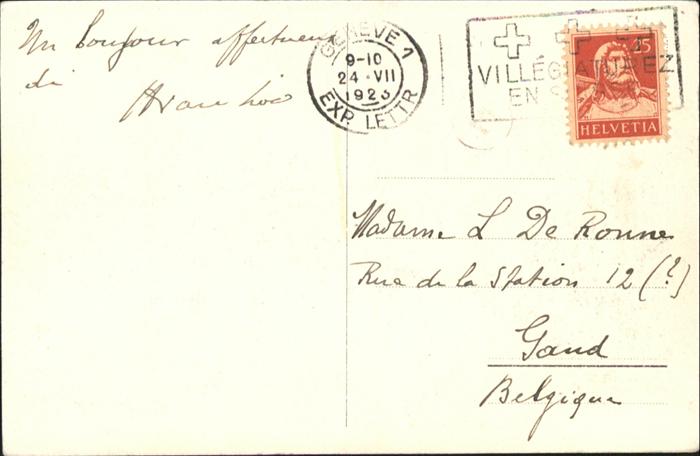 Un bonjour affectueux
di
GENÈVE 1
9-10
24 · VII
1923
EXP. LETTR
VILLÉGIATUREZ
EN S
25
HELVETIA
Madame L De Ronne
Rue de la Station 12 (?)
Gand
Belgique